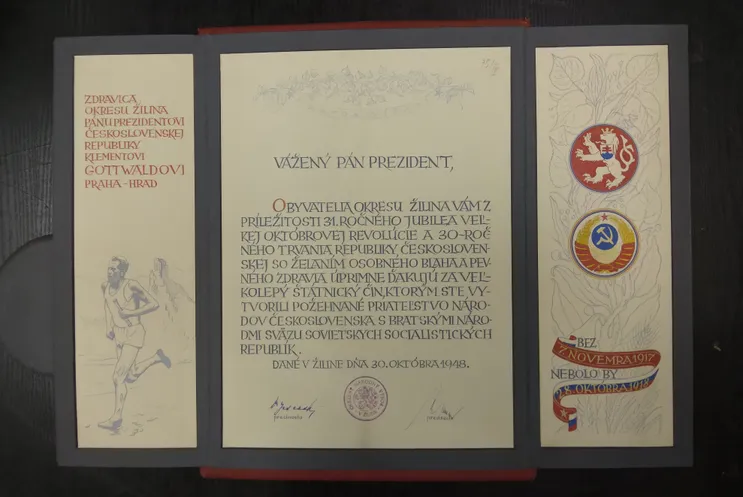 ZDRAVICA
OKRESU ŽILINA
PÁNU PREZIDENTOVI
ČESKOSLOVENSKEJ
REPUBLIKY
KLEMENTOVI
GOTTWALDOVI
PRAHA - HRAD
VÁŽENÝ PÁN PREZIDENT,
OBYVATELIA OKRESU ŽILINA VÁM Z
PRÍLEŽITOSTI 31. ROČNÉHO JUBILEA VEĽ-
KEJ OKTÓBROVEJ REVOLÚCIE A 30-ROČ-
NÉHO TRVANIA REPUBLIKY ČESKOSLOVEN-
SKEJ SO ŽELANÍM OSOBNÉHO BLAHA A PEV-
NÉHO ZDRAVIA ÚPRIMNE ĎAKUJÚ ZA VEĽ-
KOLEPÝ ŠTÁTNICKÝ ČIN, KTORÝM STE VY-
TVORILI POŽEHNANÉ PRIATEĽSTVO NÁRO-
DOV ČESKOSLOVENSKA S BRATSKÝMI NÁRO-
DMI SVÄZU SOVIETSKYCH SOCIALISTICKÝCH
REPUBLÍK.
DANÉ V ŽILINE DŇA 30. OKTÓBRA 1948.
BEZ
7. NOVEMRA 1917
NEBOLO BY
28. OKTÓBRA 1918